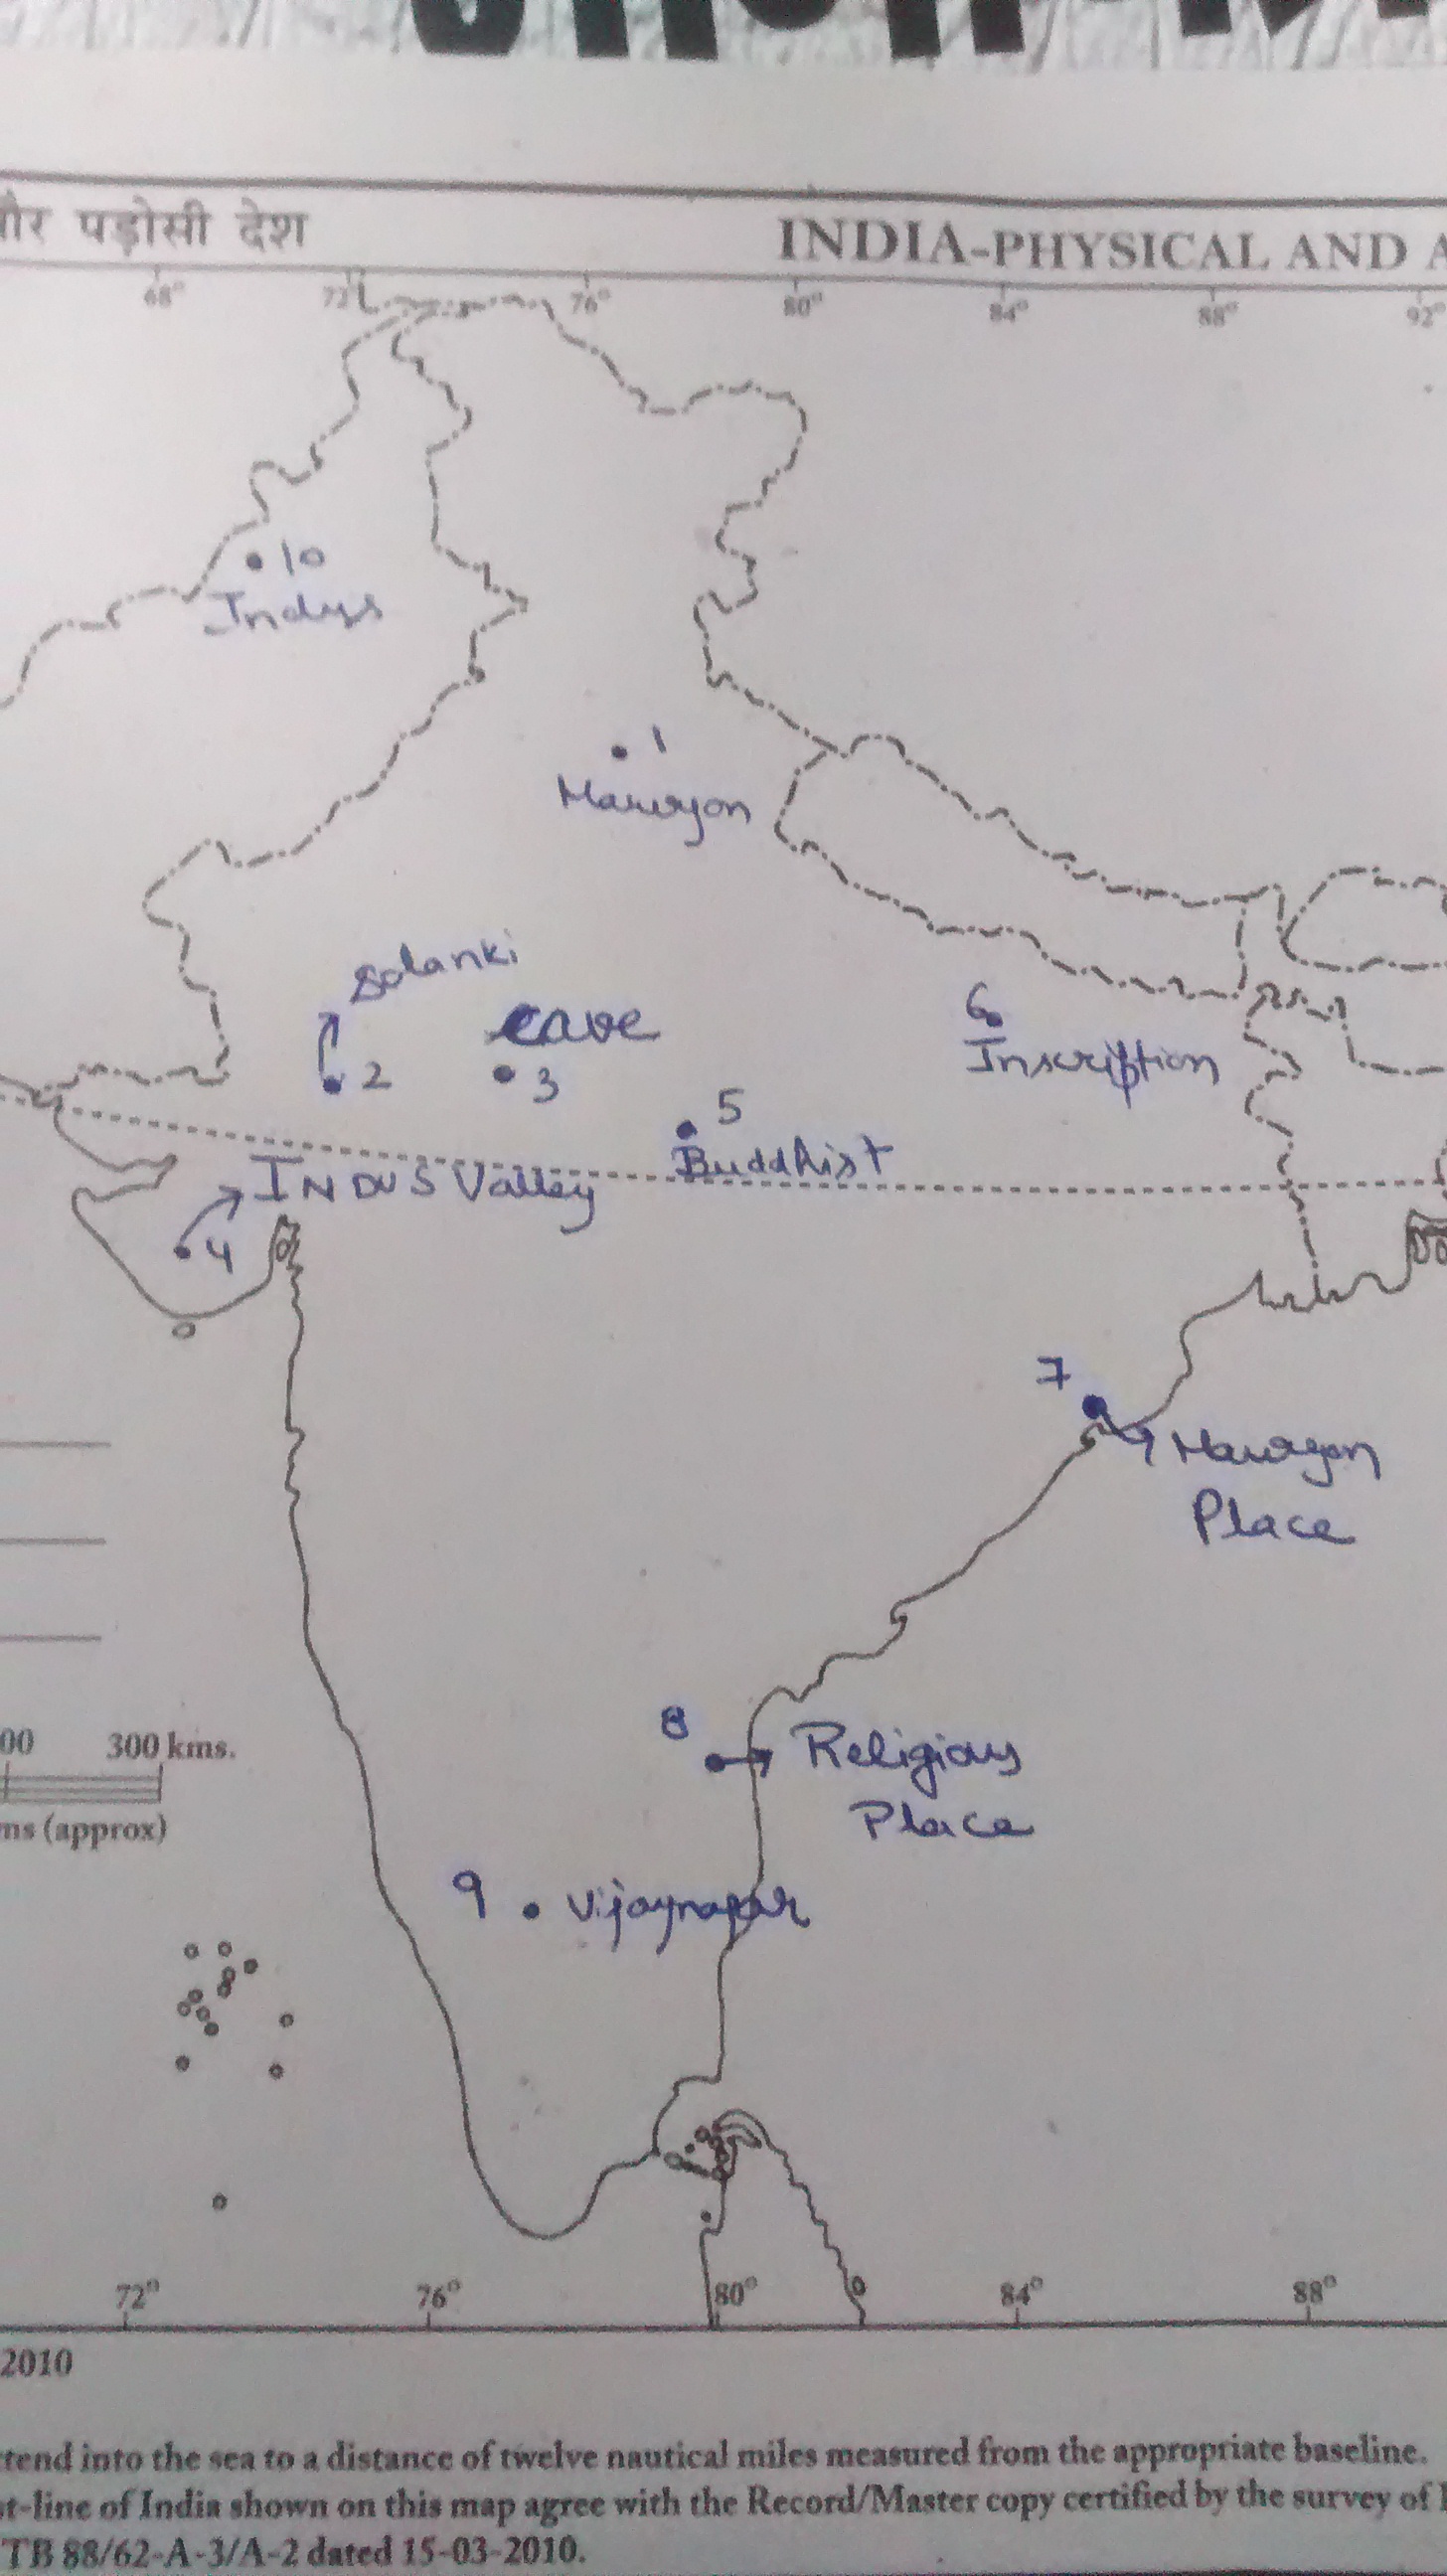 और पड़ोसी देश
INDIA-PHYSICAL AND A
68° 72° 76° 80° 84° 88° 92°
10
Indus
1
Mauryan
Solanki
2
cave
3
6
Inscription
5
Buddhist
INDUS Valley
4
7
Mauryan
Place
8
Religious
Place
00 300 kms.
ms (approx)
9 Vijaynagar
72° 76° 80° 84° 88°
2010
tend into the sea to a distance of twelve nautical miles measured from the appropriate baseline.
st-line of India shown on this map agree with the Record/Master copy certified by the survey of I
TB 88/62-A-3/A-2 dated 15-03-2010.